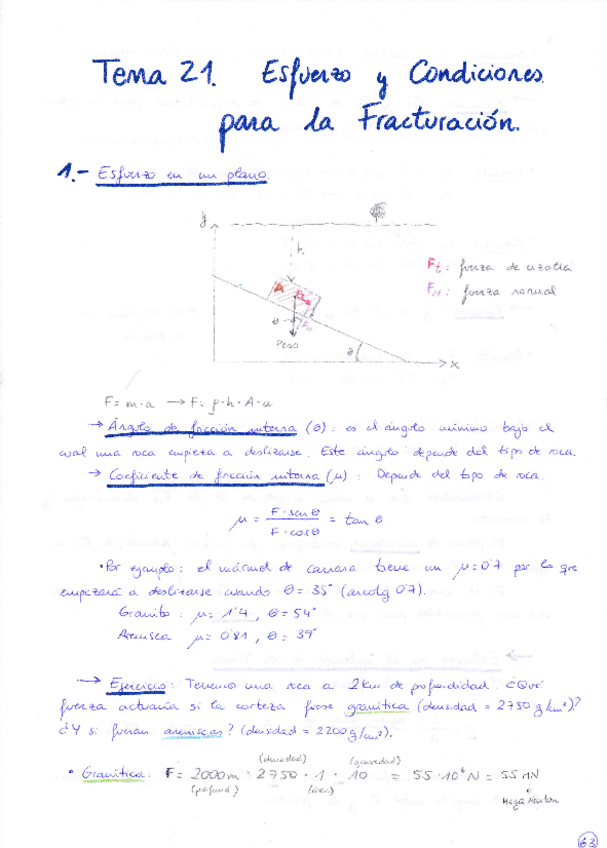 Tema 21. Esfuerzo y Condiciones
para la Fracturación.
1.- Esfuerzo en un plano.
y
h
Ft: fuerza de cizalla
FN: fuerza normal
A
FN
θ
PESO
θ
x
F = m·a → F = ρ·h·A·a
→ Ángulo de fricción interna (θ): es el ángulo mínimo bajo el
cual una roca empieza a deslizarse. Este ángulo depende del tipo de roca.
→ Coeficiente de fricción interna (μ): Depende del tipo de roca.
μ = F·senθ / F·cosθ = tan θ
• Por ejemplo: el mármol de carrara tiene un μ=0'7 por lo que
empezará a deslizarse cuando θ = 35° (arcotg 0'7).
Granito: μ = 1'4, θ = 54°
Arenisca μ = 0'81, θ = 39°
→ Ejercicio: Tenemos una roca a 2km de profundidad. ¿Qué
fuerza actuaría si la corteza fuese granítica (densidad = 2750 g/cm³)?
¿Y si fueran areniscas? (densidad = 2200 g/cm³).
(densidad) (gravedad)
• Granítica: F = 2000m · 2750 · 1 · 10 = 55·10⁶ N = 55 MN
(profund) (área) Mega Newton
63